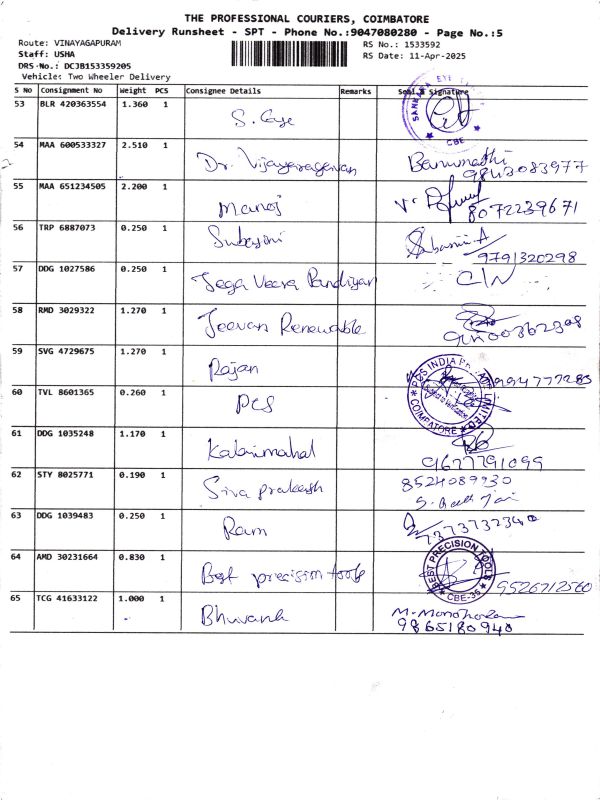 THE PROFESSIONAL COURIERS, COIMBATORE
Delivery Runsheet - SPT - Phone No.:9047080280 - Page No.:5
Route: VINAYAGAPURAM
RS No.: 1533592
Staff: USHA
RS Date: 11-Apr-2025
DRS No.: DCJB153359205
Vehicle: Two Wheeler Delivery
S No Consignment No Weight PCS Consignee Details Remarks Seal & Signature
53 BLR 420363554 1.360 1 S. CBE
54 MAA 600533327 2.510 1 Dr. Vijayaragavan
9843083977
55 MAA 651234505 2.200 1 Manoj
8072239671
56 TRP 6887073 0.250 1 Subasini
9791320298
57 DDG 1027586 0.250 1 Jega Veera Pandiyan
58 RMD 3029322 1.270 1 Jeevan Renewable
59 SVG 4729675 1.270 1 Rajan
60 TVL 8601365 0.260 1 PCS PCS INDIA LIMITED COIMBATORE
61 DDG 1035248 1.170 1 Kabinimahal
9677791099
62 STY 8025771 0.190 1 Siva prakash 8524089930
63 DDG 1039483 0.250 1 Ram
64 AMD 30231664 0.830 1 Best precision tools BEST PRECISION TOOLS CBE-35 9526712560
65 TCG 41633122 1.000 1 Bhuvana M. Manoharan
9865180940